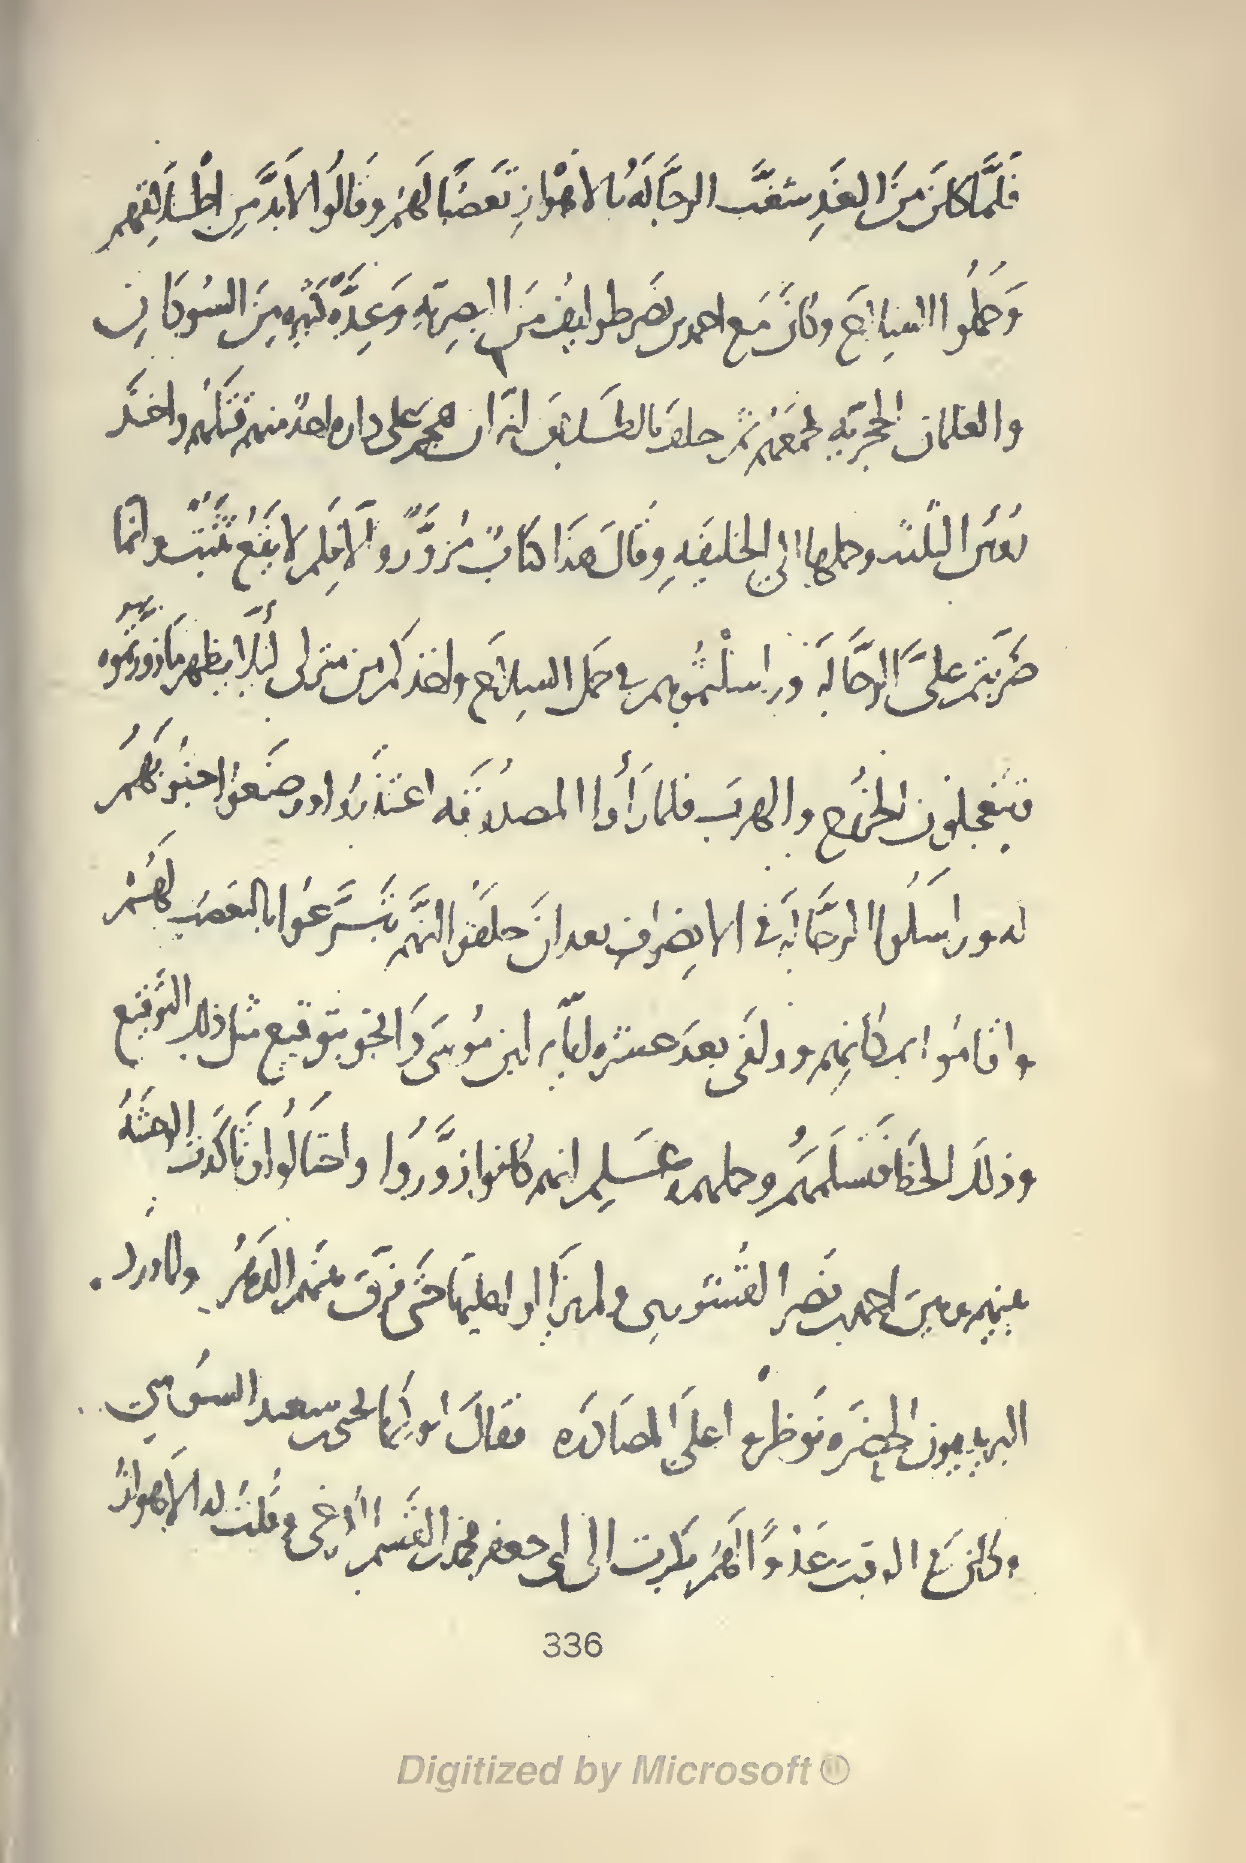 فَلَمَّا كانَ مِنَ الغَدِ شغَّب الرجَّالَةُ بالاهْوازِ تَعَصُّبًا لَهُمْ وقالُوا لا بدَّ مِن اطْلاقِهم
وَحَملُوا السِلاحَ وكانَ مَع احمد بن نصَر طوايفُ مَن البصريّهِ وَعِدَّةٌ كثيره مِنَ السُودَانِ
والغلمان الحجريّهِ فجمعَهُم ثمّ حلفَ بالطلاق انّه ان هجم على داره احدٌ منهم قتلَهُم واخذَ
رُوسَ البلَد وحملها الي الخليفَهِ وقالَ هذَا كتابٌ مُزوَّرٌ والا فلِم لا يقع تثبّت وانَّما
ضرّيتم عليَّ الرجَّالهَ وراسلْتُموهم في حَمل السِلاح واخذكم من منزلى لئلّا يظهر مَا زوّرتموه
فتتعجلون الخرُوج والهرب فلما رَأَوا المصدُوقَه اعتذَرُوا وضَعُوا جنُوبَهُم
له وراسَلُوا الرجَّالهَ في الانصراف بعد انَ حلفُوا انهَّم تَسَرَّعُوا بالتعصّب لَهُمْ
واقامُوا بمكانِهم ووافَى بعدَ عشره ايام ابن مُوسَى دَانجو بتوقيع مثل ذلك التوقيع
وذلكَ الخط فتسلَمَهُم وحملهم وعَلِم انهم كانوا زوَّرُوا واحتالُوا وتأكّدت الوحشَةُ
بينهم وبين احمد بن نصر القُشُورى ولم يزَالوا عليهَا حتَّى فرّقَ بينَهم الدَهرُ ولما ورد
البريديون الحضَره نُوظرُوا علَى المصَادَره فقالَ ابو زكريا يحيى بن سعيد السُوسي
وكان في الوقت عَدُوًّا لَهُم صَرت الى ابى جعفر محمد بن القسم الكرخى وقلت له الاهوازُ
336
Digitized by Microsoft ®